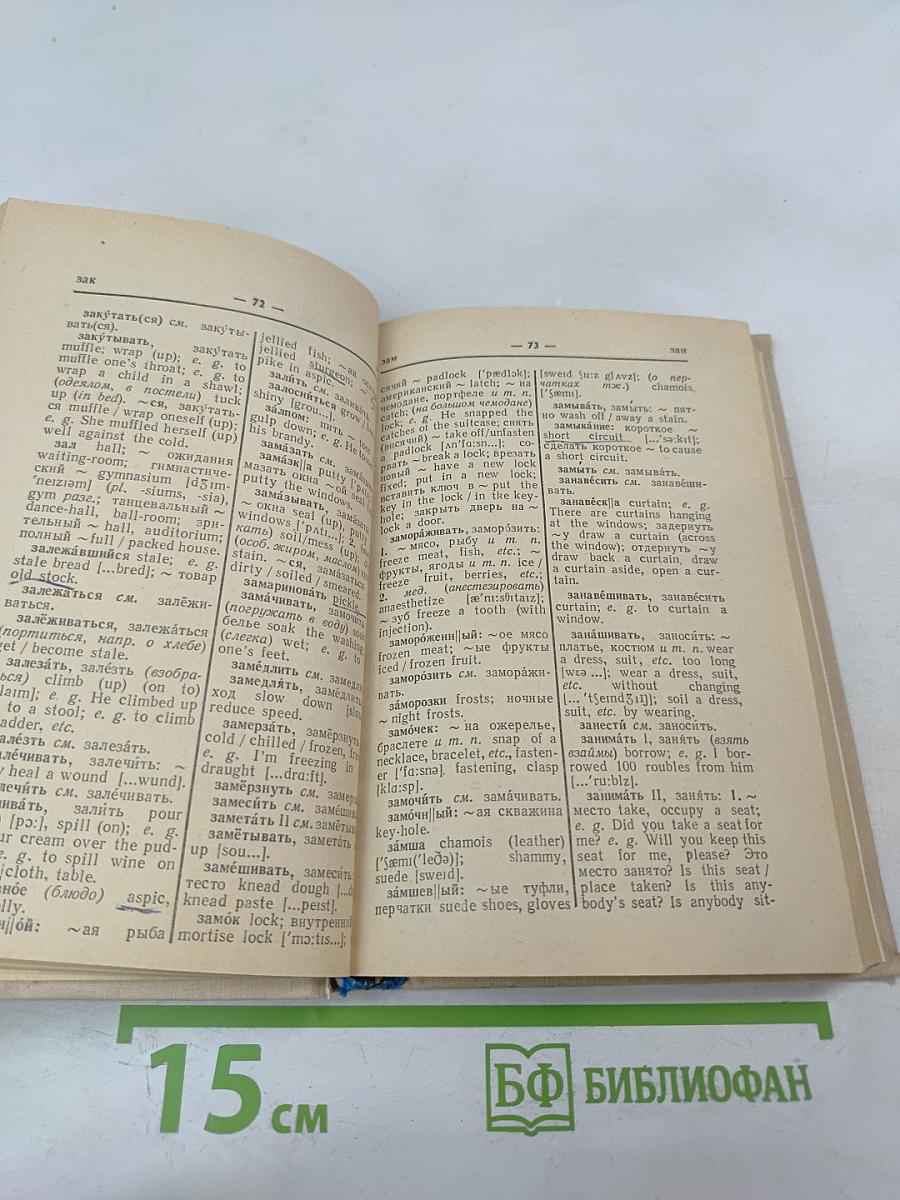 зак
— 72 —
закутать(ся) см. закуты-
вать(ся).
закутывать, закутать
muffle; wrap (up); e. g. to
muffle one's throat; e. g. to
wrap a child in a shawl;
(одеялом, в постели) tuck
up (in bed). ~ся, закутать-
ся muffle / wrap oneself (up);
e. g. She muffled herself (up)
well against the cold.
зал hall; ~ ожидания
waiting-room; гимнастиче-
ский ~ gymnasium [dʒɪm-
'neɪzɪəm] (pl. -siums, -sia),
gym разг.; танцевальный ~
dance-hall, ball-room; зри-
тельный ~ hall, auditorium;
полный ~ full / packed house.
залежа́вшийся stale; e. g.
stale bread [...bred]; ~ товар
old stock.
залежа́ться см. залёжи-
ваться.
залёживаться, залежа́ться
(портиться, напр. о хлебе)
get / become stale.
залеза́ть, зале́зть (взобра-
ться) climb (up) (on to)
[klaɪm]; e. g. He climbed up
to a stool; e. g. to climb
ladder, etc.
зале́зть см. залеза́ть.
зале́чивать, залечи́ть: ~
heal a wound [...wund].
залечи́ть см. зале́чивать.
зали́ть pour
[pɔ:], spill (on); e. g.
cream over the pud-
e. g. to spill wine on
cloth, table.
(блюдо) aspic,
~ая рыба
jellied fish; ~ая
jellied sturgeon;
pike in aspic.
зали́ть см. залива́ть.
залосни́ться grow
shiny [grou...].
за́лпом: пить ~
gulp down; e. g. He
his brandy.
зама́зать см.
зама́зк||а putty
мазать окна ~ой seal
putty the windows.
зама́зывать, зама́зать
~ окна seal (up), putty
windows ['pʌtɪ...]; 2.
soil/mess (up);
(особ. жиром, маслом)
stain. ~ся, зама́заться
dirty / soiled / smeared.
замаринова́ть pickle.
зама́чивать, замочи́ть
(погружать в воду)
белье soak the washing
(слегка) wet; e. g. to
one's feet.
заме́длить см.
замедля́ть, заме́длить
ход slow down
reduce speed.
замерза́ть, замёрзнуть
cold / chilled / frozen,
e. g. I'm freezing in
draught [...drɑ:ft].
замёрзнуть см.
замеси́ть см.
замета́ть II см.
замётывать, замета́ть
up [sou...].
заме́шивать, замеси́ть:
тесто knead dough
knead paste [...peɪst].
замо́к lock; внутренний
mortise lock ['mɔ:tɪs...];
зам
— 73 —
зан
сячий ~ padlock ['pædlək];
американский ~ latch; ~ на
чемодане, портфеле и т. п.
catch; (на большом чемодане)
lock; e. g. He snapped the
catches of the suitcase; снять
(висячий) ~ take off/unfasten
a padlock [ʌn'fɑ:sn...]; со-
рвать ~ break a lock; врезать
новый ~ have a new lock
fixed; put in a new lock;
вставить ключ в ~ put the
key in the lock / in the key-
hole; закрыть дверь на ~
lock a door.
замора́живать, заморо́зить:
1. ~ мясо, рыбу и т. п.
freeze meat, fish, etc.; ~
фрукты, ягоды и т. п. ice /
freeze fruit, berries, etc.;
2. мед. (анестезировать)
anaesthetize [æ'nɪ:sθɪtaɪz];
~ зуб freeze a tooth (with
injection).
заморо́женн||ый: ~ое мясо
frozen meat; ~ые фрукты
iced / frozen fruit.
заморо́зить см. заморажи-
вать.
за́морозки frosts; ночные
~ night frosts.
замо́чек: ~ на ожерелье,
браслете и т. п. snap of a
necklace, bracelet, etc., fasten-
er ['fɑ:snə], fastening, clasp
[klɑ:sp].
замочи́ть см. зама́чивать.
замо́чн||ый: ~ая скважина
key-hole.
за́мша chamois (leather)
['ʃæmɪ('leðə)]; shammy,
suede [sweɪd].
за́мшев||ый: ~ые туфли,
перчатки suede shoes, gloves
[sweɪd ʃu:z glʌvz]; (о пер-
чатках тж.) chamois,
['ʃæmɪ].
замыва́ть, замы́ть: ~ пят-
но wash off / away a stain.
замыка́ние: короткое ~
short circuit [...'sə:kɪt];
сделать короткое ~ to cause
a short circuit.
замы́ть см. замыва́ть.
занаве́сить см. занаве́ши-
вать.
занаве́ск||а curtain; e. g.
There are curtains hanging
at the windows; задернуть
~у draw a curtain (across
the window); отдернуть ~у
draw back a curtain, draw
a curtain aside, open a cur-
tain.
занаве́шивать, занаве́сить
curtain; e. g. to curtain a
window.
зана́шивать, заноси́ть: ~
платье, костюм и т. п. wear
a dress, suit, etc. too long
[wɛə ...]; wear a dress, suit,
etc. without changing
[...'tʃeɪndʒɪŋ]; soil a dress,
suit, etc. by wearing.
занести́ см. заноси́ть.
занима́ть I, заня́ть (взять
взаймы) borrow; e. g. I bor-
rowed 100 roubles from him
[...'ru:blz].
занима́ть II, заня́ть: 1. ~
место take, occupy a seat;
e. g. Did you take a seat for
me? e. g. Will you keep this
seat for me, please? Это
место занято? Is this seat /
place taken? Is this any-
body's seat? Is anybody sit-
15 см
БФ БИБЛИОФАН